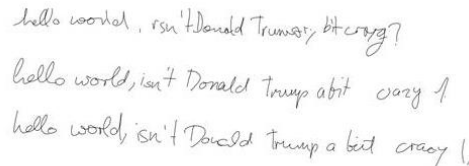 hello world, isn't Donald bit crazy?
hello world, isn't Donald Trump a bit crazy
hello world, isn't Donald Trump a bit crazy